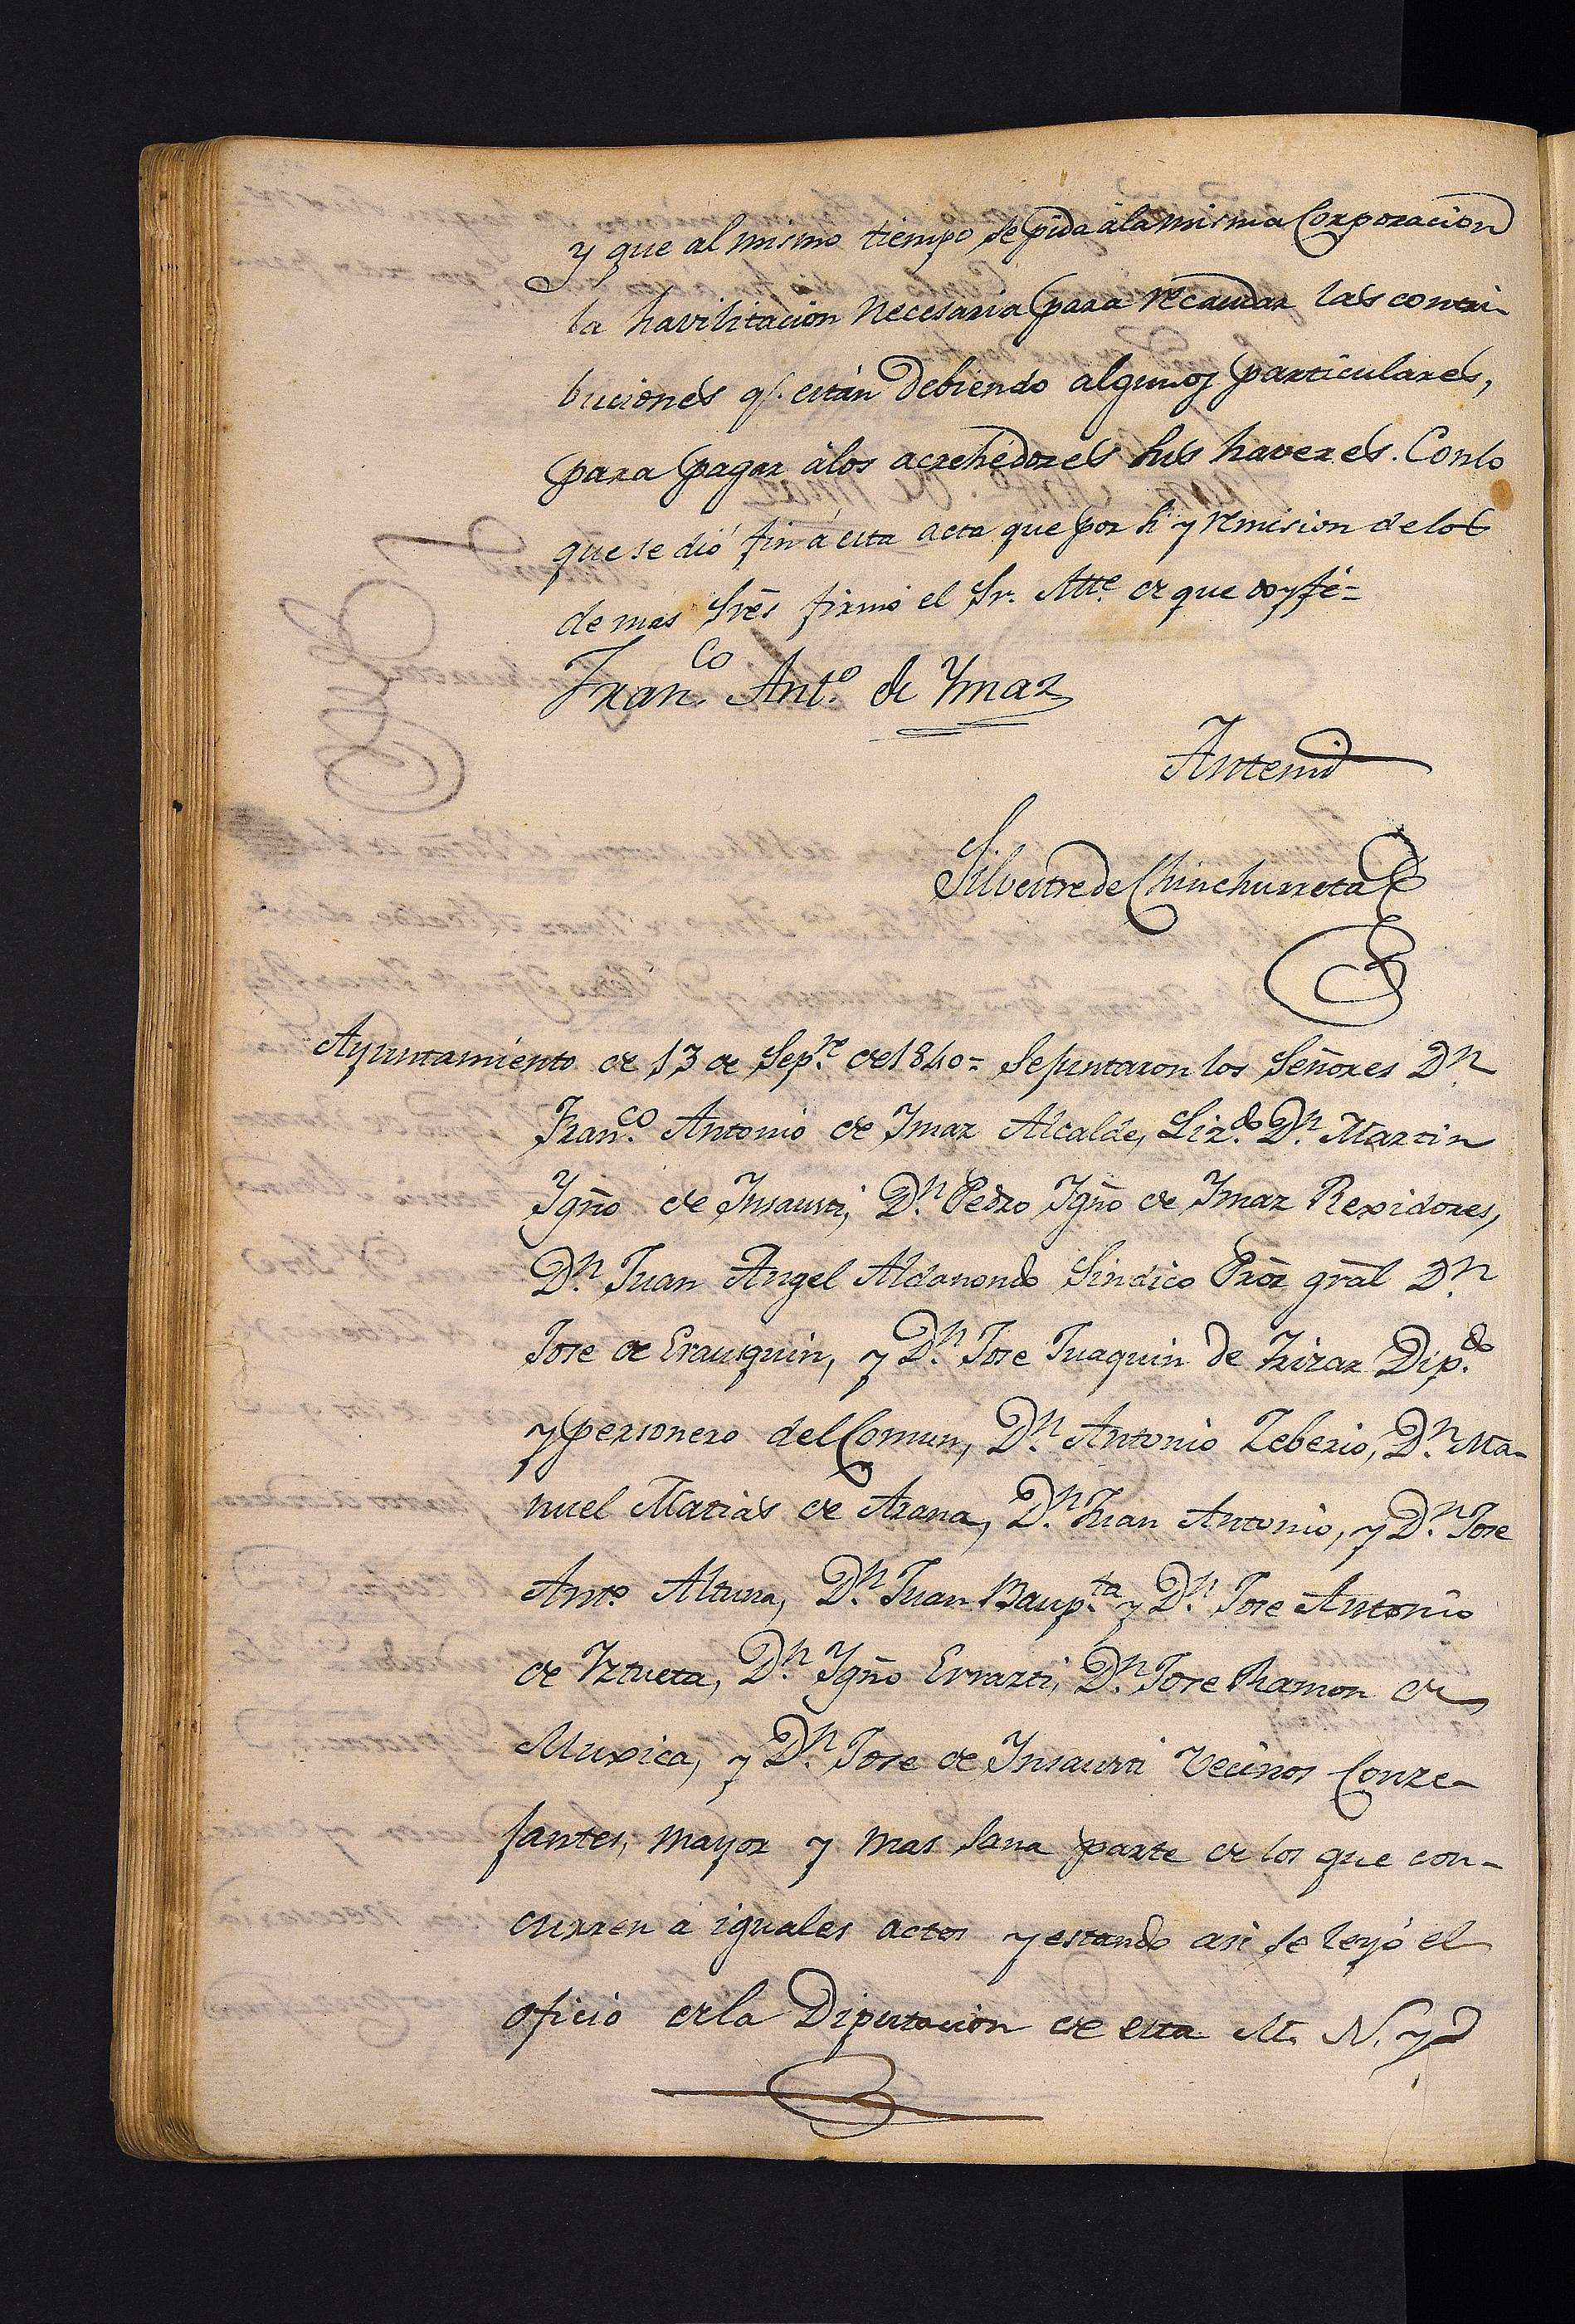 y que al mismo tiempo se pida à la misma Corporacion
la havilitacion necesaria para recaudar las contri-
buciones q.e están debiendo algunos particulares,
para pagar à los acrehedores sus haveres. Con lo
que se dió fin á esta acta que por sí y remision de los
demas Srēs firmó el Sr. Alte de que doy fé =
Fran.co Ant.o de Ymaz
Antemi
Silvestre de Chinchurreta
Ayuntamiento de 13 de Sep.re de 1840 = Se juntaron los Señores D.n
Fran.co Antonio de Imaz Alcalde, Liz.do D.n Martin
Ygño de Insausti, D.n Pedro Ygño de Imaz Rexidores,
D.n Juan Angel Aldanondo Sindico Prōr grāl D.n
Jose de Erausquin, y D.n Jose Juaquin de Irizar Dip.do
y personero del Comun, D.n Antonio Zeberio, D.n Ma-
nuel Matias de Arana, D.n Juan Antonio, y D.n Jose
Ant.o Altuna, D.n Juan Baup.ta y D.n Jose Antonio
de Iztueta, D.n Ygño Errazti, D.n Jose Ramon de
Muxica, y D.n Jose de Insausti Vecinos Conze-
jantes, mayor y mas sana parte de los que con-
curren à iguales actos y estando asi se leyó el
oficio de la Diputacion de esta M. N. y